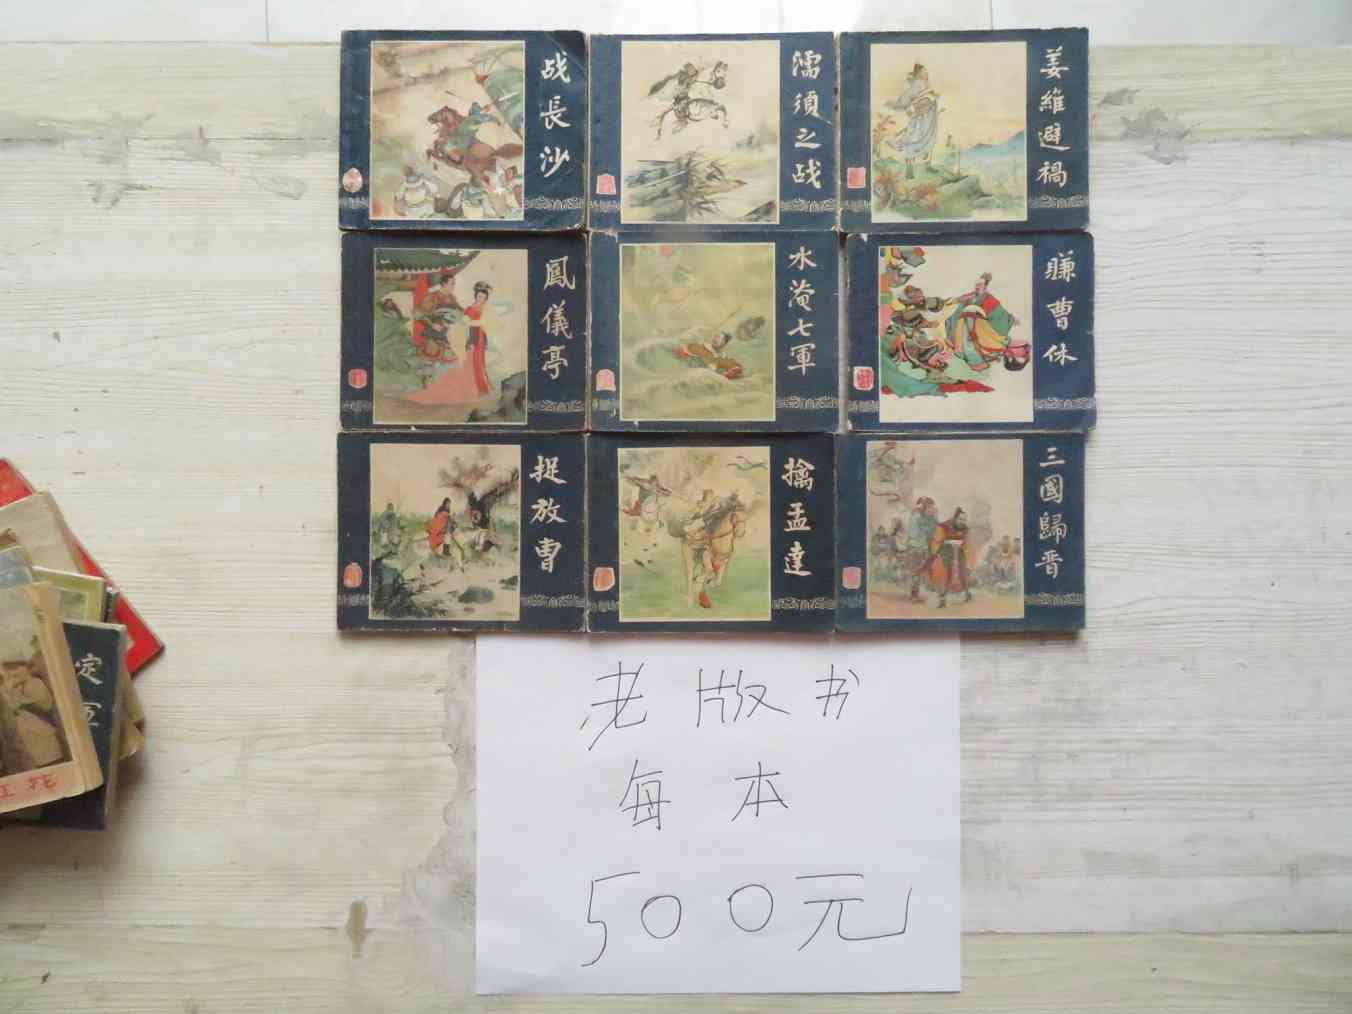 战長沙
濡須之战
姜維避禍
鳳儀亭
水淹七軍
賺曹休
捉放曹
擒孟達
三國歸晋
定軍
红花
老版书
每本
500元